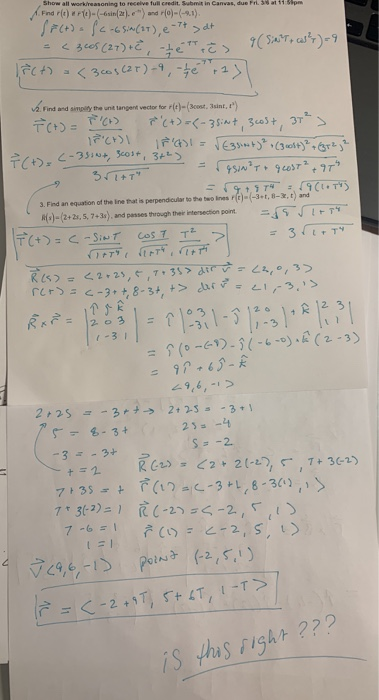 Show all work/reasoning to receive full credit. Submit in Canvas, due Fri. 3/6 at 11:59pm
1. Find r(t) if r'(t)=⟨-6sin(2t), e^-7t⟩ and r(0)=⟨-9,1⟩.
∫r⃗'(t) = ∫<-6sin(2T), e^-7t >dt
= < 3cos(2T)+c⃗, -1/7e^-7T +c⃗ > 9(sin²T+cos²T)=9
r⃗(t) = <3cos(2T)-9, -1/7e^-7T+1 >
√2. Find and simplify the unit tangent vector for r(t)=⟨3cost, 3sint, t³⟩
T⃗(t) = r⃗'(t)/|r⃗'(t)| r⃗'(t)=<-3sint, 3cost, 3T² >
|r⃗'(t)| = √((-3sint)²+(3cost)²+(3T²)²
T⃗(t)= <-3sint, 3cost, 3t²>/3√1+T⁴ = √9sin²T+9cos²T+9T⁴
= √9+9T⁴ = √9(1+T⁴)
3. Find an equation of the line that is perpendicular to the two lines r(t)=⟨-3+t, 8-3t, t⟩ and
R(s)=⟨2+2s, 5, 7+3s⟩, and passes through their intersection point. = √9 √1+T⁴
T⃗(t)=< -sinT/√1+T⁴, cosT/√1+T⁴, T²/√1+T⁴ > = 3√1+T⁴
R⃗(s) = <2+2s, 5, 7+3s> dir v⃗ = <2,0,3>
r(t) = <-3+t, 8-3t, t> dir v⃗ = <1,-3,1>
R⃗×r⃗ = |î ĵ k̂ 2 0 3 1 -3 1| = î|0 3 -3 1| - ĵ|2 0 1 -3| + k̂|2 3 1 1|
= î(0-(-9)) - ĵ(-6-0)+k̂(2-3)
= 9î+6ĵ-k̂
<9,6,-1>
2+2s = -3+t → 2+2s = -3+1
5 = 8-3t 2s = -4
-3 = -3t s = -2
t=1 R⃗(-2) = <2+2(-2), 5, 7+3(-2)
7+3s = t r⃗(1) = <-3+1, 8-3(1), 1>
7+3(-2)=1 R⃗(-2) = <-2, 5, 1)
7-6=1 r⃗(1) = <-2, 5, 1)
1=1
v⃗<9,6,-1) point (-2,5,1)
r⃗ = <-2+9T, 5+6T, 1-T>
is this right ???